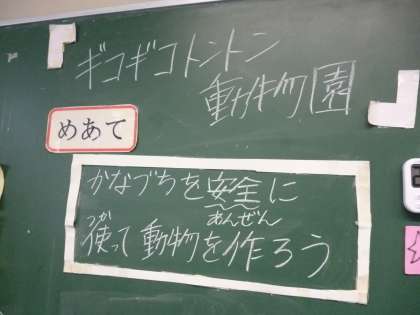 ギコギコトントン
動物園
めあて
かなづちを安全に
あんぜん
つか
使って動物を作ろう